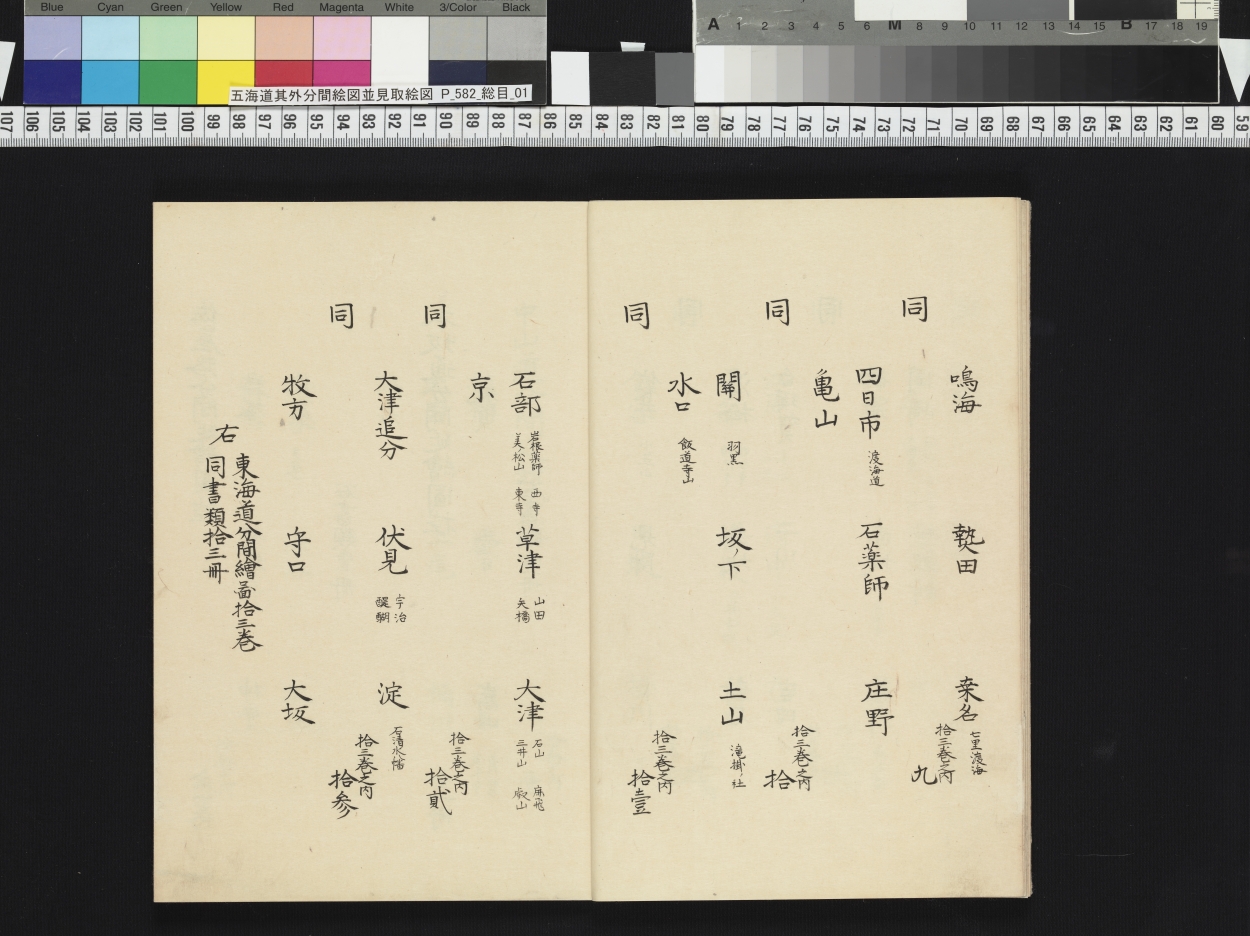 Blue Cyan Green Yellow Red Magenta White 3/Color Black
A 1 2 3 4 5 6 M 8 9 10 11 12 13 14 15 B 17 18 19
五海道其外分間絵図並見取絵図 P_582_総目_01
107 106 105 104 103 102 101 100 99 98 97 96 95 94 93 92 91 90 89 88 87 86 85 84 83 82 81 80 79 78 77 76 75 74 73 72 71 70 69 68 67 66 65 64 63 62 61 60 59
鳴海 熱田 桒名 七里渡海
同 拾三巻之内 九
四日市 渡海道 石薬師 庄野
亀山
同 拾三巻之内 拾
関 羽黒 坂ノ下 土山 滝掛ノ社
水口 飯道寺山
同 拾三巻之内 拾壹
石部 岩根薬師 美ノ松山 西寺 東寺 草津 山田 矢橋 大津 石山 三井山 叡山
京
同 拾三巻之内 拾貳
大津追分 伏見 宇治 醍醐 淀 石清水
同 拾三巻之内 拾参
牧方 守口 大坂
右 東海道分間繪圖拾三巻
同書類拾三冊